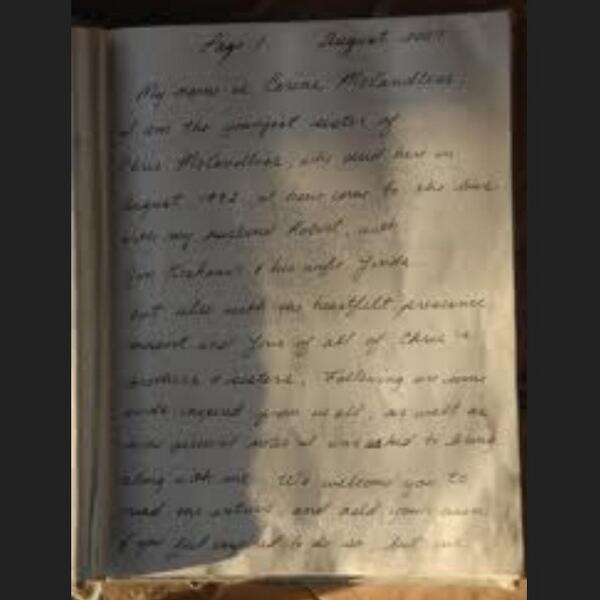 Page 1 August
My name is McCandless,
I am the youngest sister of
Chris McCandless, who died here in
August 1992. I have come to the bus
with my husband Robert, with
Jon Krakauer & his wife Linda
but also with the heartfelt presence
and love of all of Chris's
brothers & sisters. Following are some
words inspired from us all, as well as
some personal notes I wanted to bring
along with me. We welcome you to
read and add your own
if you feel inspired to do so, but we